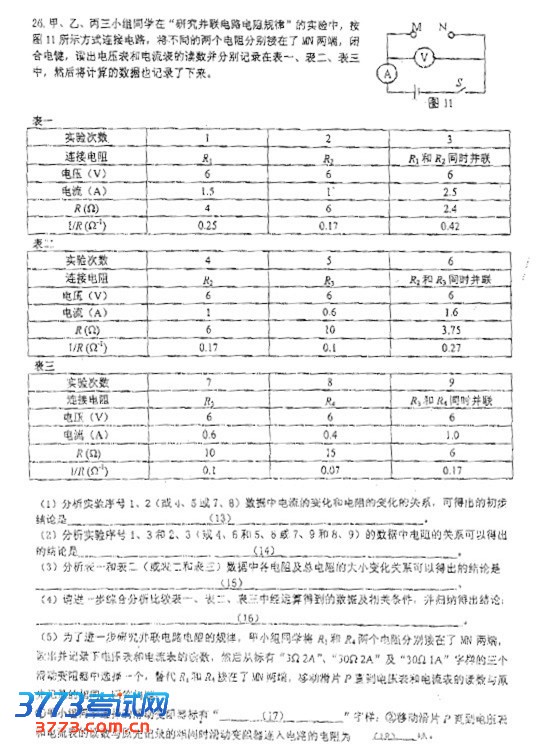 26. 甲、乙、丙三小组同学在“研究并联电路电阻规律”的实验中，按
图 11 所示方式连接电路，将不同的两个电阻分别接在了 MN 两端，闭
合电键，读出电压表和电流表的读数并分别记录在表一、表二、表三
中，然后将计算的数据也记录了下来。
M N
V
A
S
图 11
表一
实验次数 1 2 3
连接电阻 R₁ R₂ R₁ 和 R₂ 同时并联
电压（V） 6 6 6
电流（A） 1.5 1 2.5
R (Ω) 4 6 2.4
1/R (Ω⁻¹) 0.25 0.17 0.42
表二
实验次数 4 5 6
连接电阻 R₂ R₃ R₂ 和 R₃ 同时并联
电压（V） 6 6 6
电流（A） 1 0.6 1.6
R (Ω) 6 10 3.75
1/R (Ω⁻¹) 0.17 0.1 0.27
表三
实验次数 7 8 9
连接电阻 R₃ R₄ R₃ 和 R₄ 同时并联
电压（V） 6 6 6
电流（A） 0.6 0.4 1.0
R (Ω) 10 15 6
1/R (Ω⁻¹) 0.1 0.07 0.17
（1）分析实验序号 1、2（或 4、5 或 7、8）数据中电流的变化和电阻的变化的关系，可得出的初步
结论是 (13) 。
（2）分析实验序号 1、3 和 2、3（或 4、6 和 5、6 或 7、9 和 8、9）的数据中电阻的关系可以得出
的结论是 (14) 。
（3）分析表一和表二（或表二和表三）数据中各电阻及总电阻的大小变化关系可以得出的结论是
(15) 。
（4）请进一步综合分析比较表一、表二、表三中经运算得到的数据及相关条件，并归纳得出结论：
(16) 。
（5）为了进一步研究并联电路电阻的规律，甲小组同学将 R₁ 和 R₄ 两个电阻分别接在了 MN 两端，
读出并记录下电压表和电流表的读数，然后从标有“3Ω 2A”、“30Ω 2A” 及 “30Ω 1A” 字样的三个
滑动变阻器中选择一个，替代 R₁ 和 R₄ 接在了 MN 两端，移动滑片 P 直到电压表和电流表的读数与原
(17) ”字样；②移动滑片 P 直到电压表
和电流表的读数与原先记录的相同时滑动变阻器连入电路的电阻为 (18) 欧。
3773考试网
www.3773.com.cn